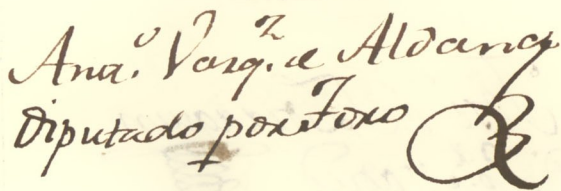 Ant.º Vazq.z de Aldana
Diputado por Toro